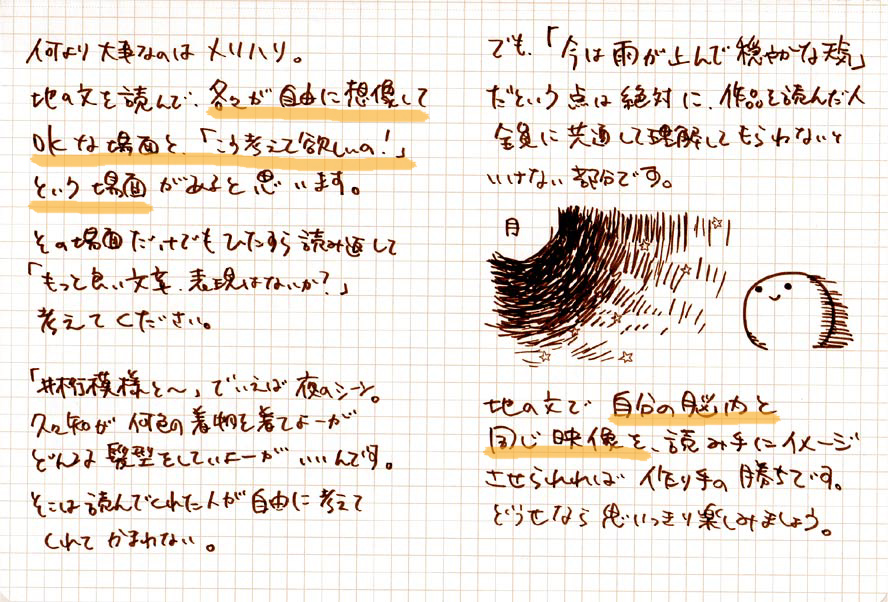 何より大事なのはメリハリ。
地の文を読んで、各々が自由に想像して
OKな場面と、「こう考えて欲しいの!」
という場面があると思います。
その場面だけでもひたすら読み返して
「もっと良い文章、表現はないか?」
考えてください。
「井桁模様と〜」でいえば夜のシーン。
久々知が何色の着物を着てよーが
どんな髪型をしていよーがいいんです。
そこは読んでくれた人が自由に考えて
くれてかまわない。
でも、「今は雨が止んで穏やかな天気」
だという点は絶対に、作品を読んだ人
全員に共通して理解してもらわないと
いけない部分です。
月
地の文で自分の脳内と
同じ映像を、読み手にイメージ
させられれば作り手の勝ちです。
どうせなら思いっきり楽しみましょう。